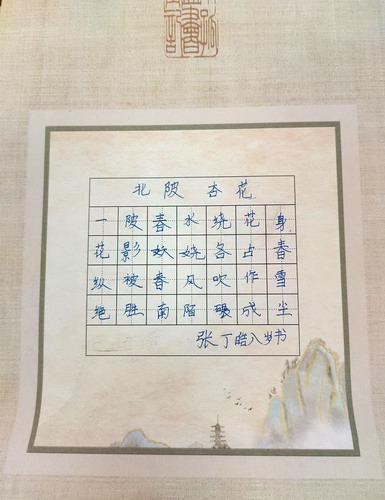 北陂 杏花
一陂春水绕花身
花影妖娆各占春
纵被春风吹作雪
绝胜南陌碾成尘
张丁皓八岁书